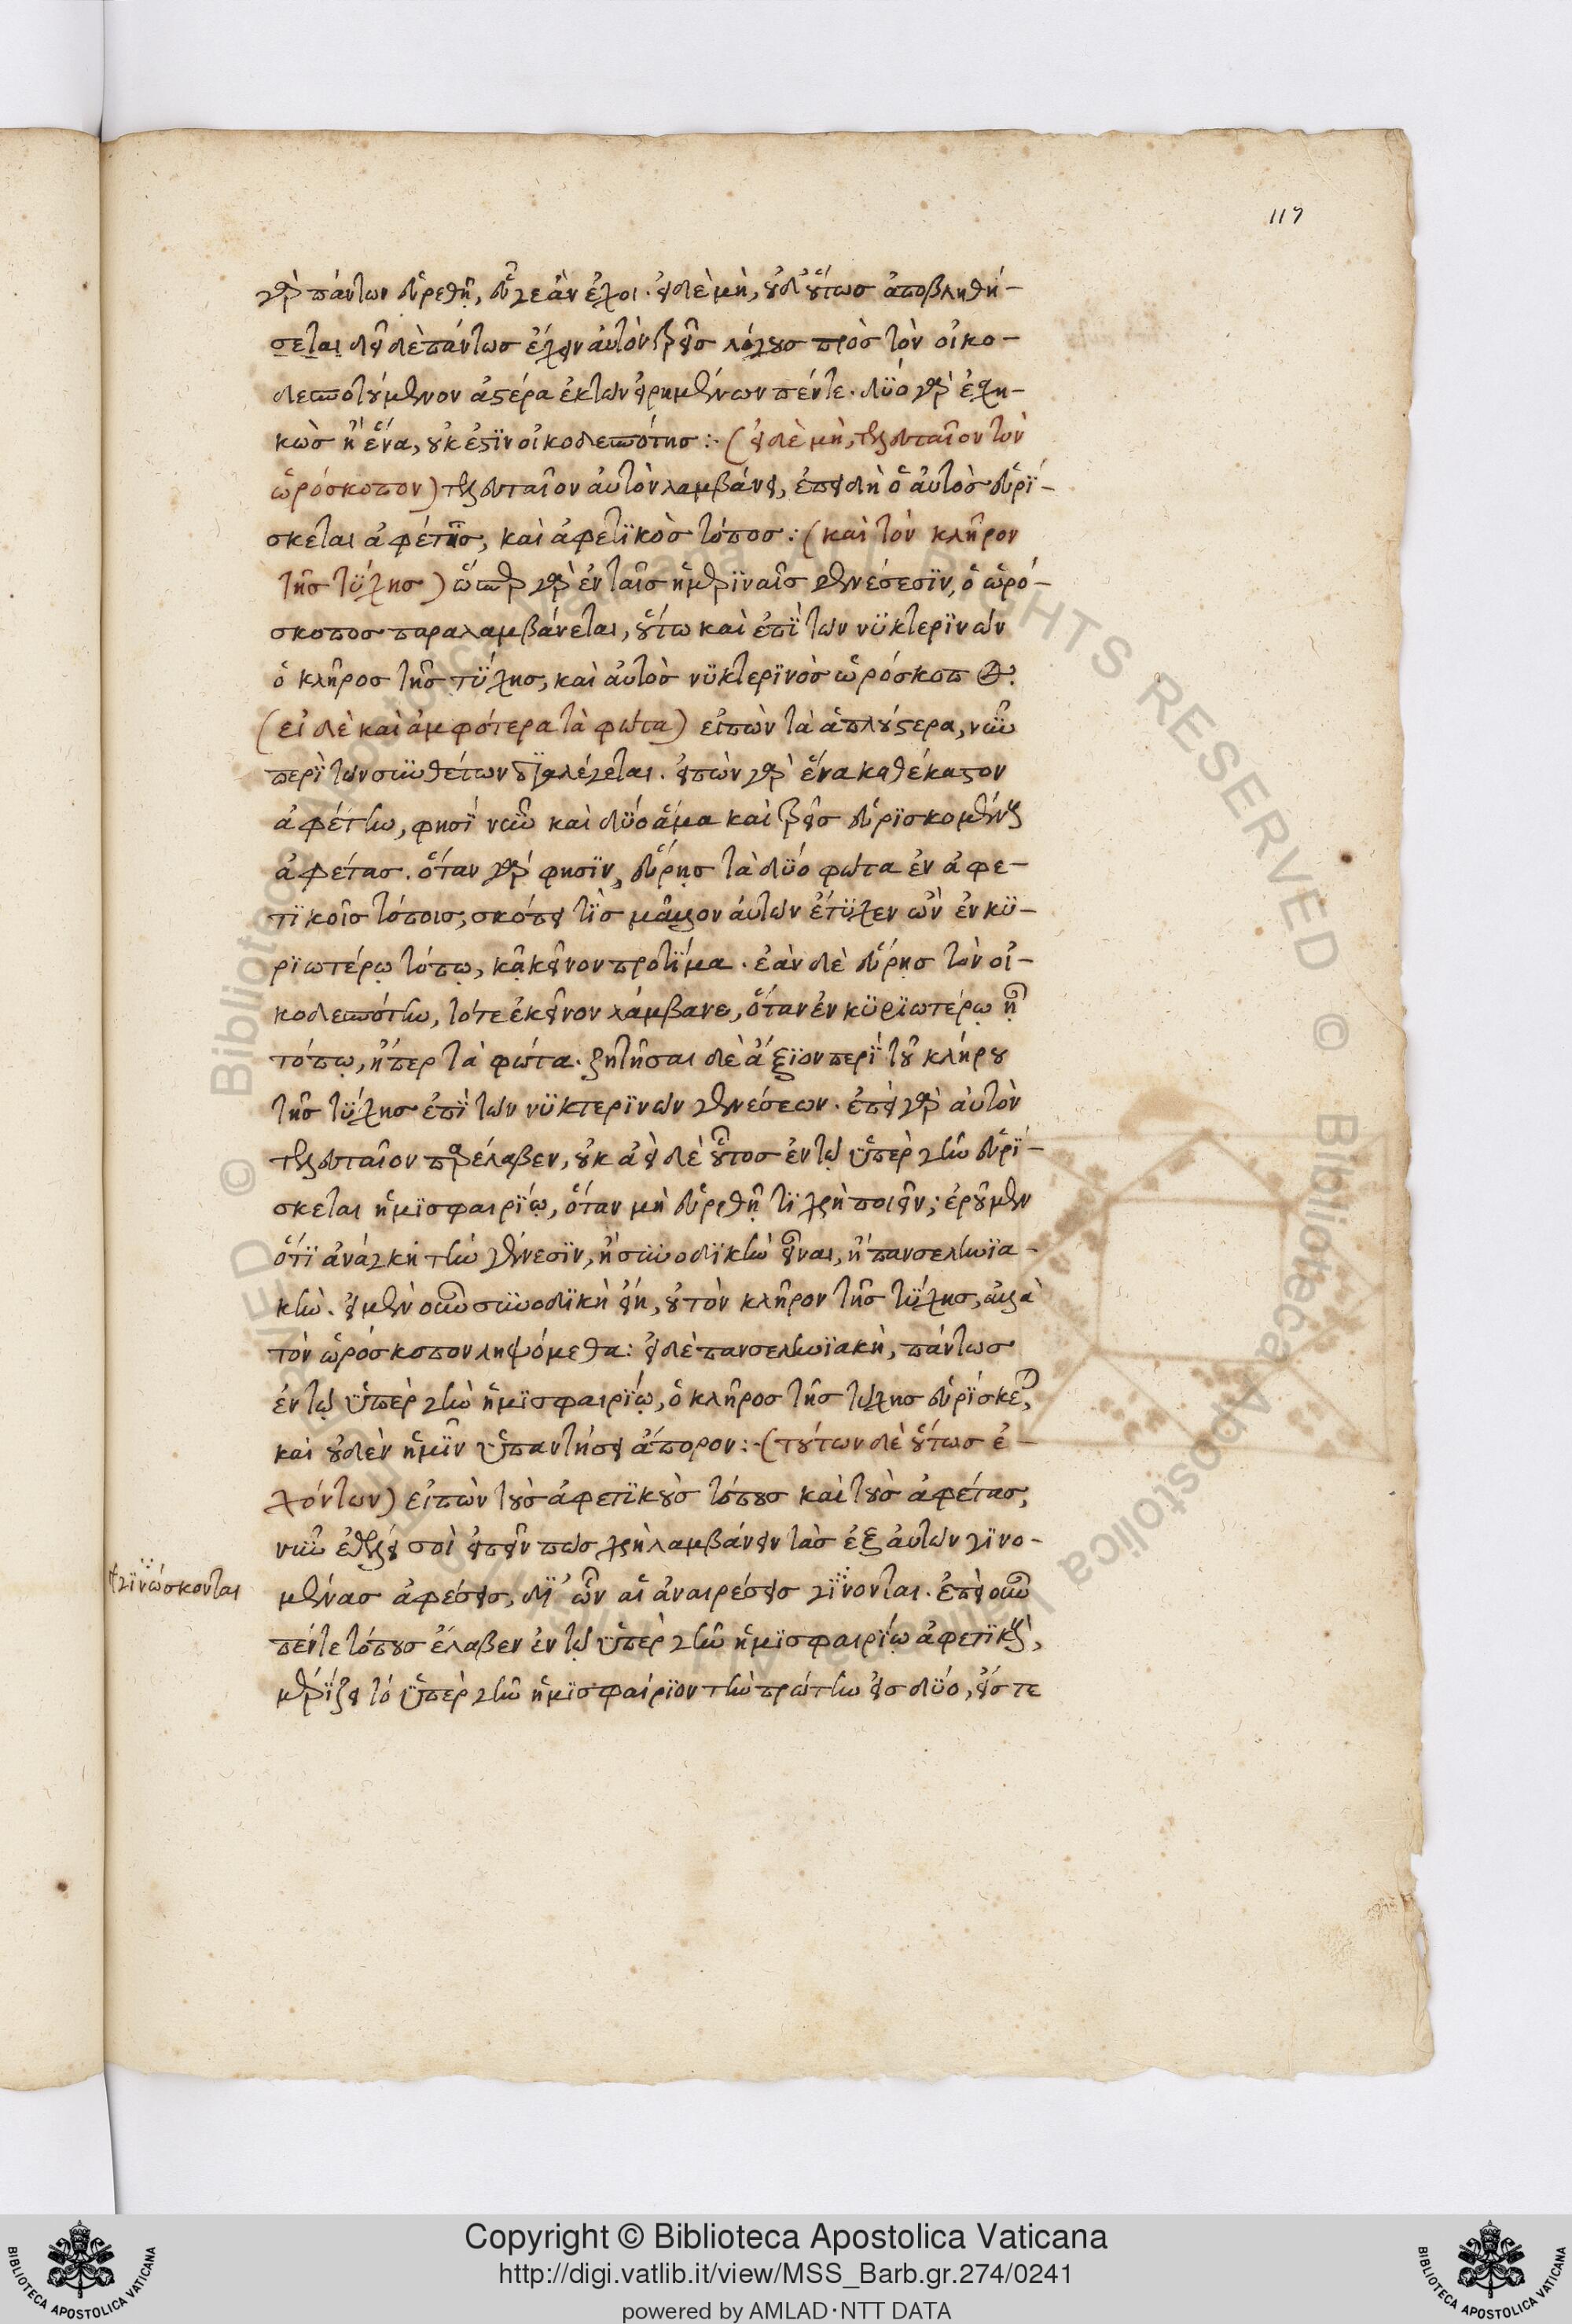 117
γὰρ πάντων εὑρεθῇ, εὖ γε ἂν ἔχοι. εἰ δὲ μὴ, οὐδ' οὕτως ἀποβληθή-
σεται. δεῖ δὲ πάντως ἔχειν αὐτὸν τρεῖς λόγους πρὸς τὸν οἰκο-
δεσποτούμενον ἀστέρα ἐκ τῶν εἰρημένων πέντε. δύο γὰρ ἐσχη-
κὼς ἢ ἕνα, οὐκ ἔστιν οἰκοδεσπότης :· (εἰ δὲ μὴ, τελευταῖον τὸν
ὡρόσκοπον) τελευταῖον αὐτὸν λαμβάνει, ἐπειδὴ ὁ αὐτὸς εὑρί-
σκεται ἀφέτης, καὶ ἀφετικὸς τόπος : (καὶ τὸν κλῆρον
τῆς τύχης) ὥσπερ γὰρ ἐν ταῖς ἡμεριναῖς γενέσεσιν, ὁ ὡρό-
σκοπος παραλαμβάνεται, οὕτω καὶ ἐπὶ τῶν νυκτερινῶν
ὁ κλῆρος τῆς τύχης, καὶ αὐτὸς νυκτερινὸς ὡρόσκοπος.
(εἰ δὲ καὶ ἀμφότερα τὰ φῶτα) εἰπὼν τὰ ἁπλούστερα, νῦν
περὶ τῶν συνθέτων διαλέγεται. εἰπὼν γὰρ ἕνα καθ' ἕκαστον
ἀφέτην, φησὶ νῦν καὶ δύο ἅμα καὶ τρεῖς εὑρισκομένους
ἀφέτας. ὅταν γάρ φησιν, εὕρῃς τὰ δύο φῶτα ἐν ἀφε-
τικοῖς τόποις, σκόπει τίς μᾶλλον αὐτῶν ἔτυχεν ὢν ἐν κυ-
ριωτέρῳ τόπῳ, κἀκεῖνον προτίμα. ἐὰν δὲ εὕρῃς τὸν οἰ-
κοδεσπότην, τότε ἐκεῖνον λάμβανε, ὅταν ἐν κυριωτέρῳ ᾖ
τόπῳ, ἤπερ τὰ φῶτα. ζητῆσαι δὲ ἄξιον περὶ τοῦ κλήρου
τῆς τύχης ἐπὶ τῶν νυκτερινῶν γενέσεων. ἐπεὶ γὰρ αὐτὸν
τελευταῖον παρέλαβεν, οὐκ ἀεὶ δὲ οὗτος ἐν τῷ ὑπὲρ γῆν εὑρί-
σκεται ἡμισφαιρίῳ, ὅταν μὴ εὑρεθῇ τί χρὴ ποιεῖν; ἐροῦμεν
ὅτι ἀνάγκη τὴν γένεσιν, ἢ συνοδικὴν εἶναι, ἢ πανσεληνια-
κήν. εἰ μὲν οὖν συνοδικὴ εἴη, οὐ τὸν κλῆρον τῆς τύχης, ἀλλὰ
τὸν ὡρόσκοπον ληψόμεθα: εἰ δὲ πανσεληνιακὴ, πάντως
ἐν τῷ ὑπὲρ γῆν ἡμισφαιρίῳ, ὁ κλῆρος τῆς τύχης εὑρίσκεται,
καὶ οὐδὲν ἡμῖν ὑπαντήσει ἄπορον :· (τούτων δὲ οὕτως ἐ-
χόντων) εἰπὼν τοὺς ἀφετικοὺς τόπους καὶ τοὺς ἀφέτας,
νῦν ἐθέλει σοὶ εἰπεῖν πῶς χρὴ λαμβάνειν τὰς ἐξ αὐτῶν γινο-
μένας ἀφέσεις, δι' ὧν αἱ ἀναιρέσεις γίνονται. ἐπεὶ οὖν
γινώσκονται
πέντε τόπους ἔλαβεν ἐν τῷ ὑπὲρ γῆν ἡμισφαιρίῳ ἀφετικοὺς,
μερίζει τὸ ὑπὲρ γῆν ἡμισφαίριον τὴν πρώτην εἰς δύο, εἴς τε
Copyright © Biblioteca Apostolica Vaticana
http://digi.vatlib.it/view/MSS_Barb.gr.274/0241
powered by AMLAD·NTT DATA
BIBLIOTECA APOSTOLICA VATICANA
BIBLIOTECA APOSTOLICA VATICANA